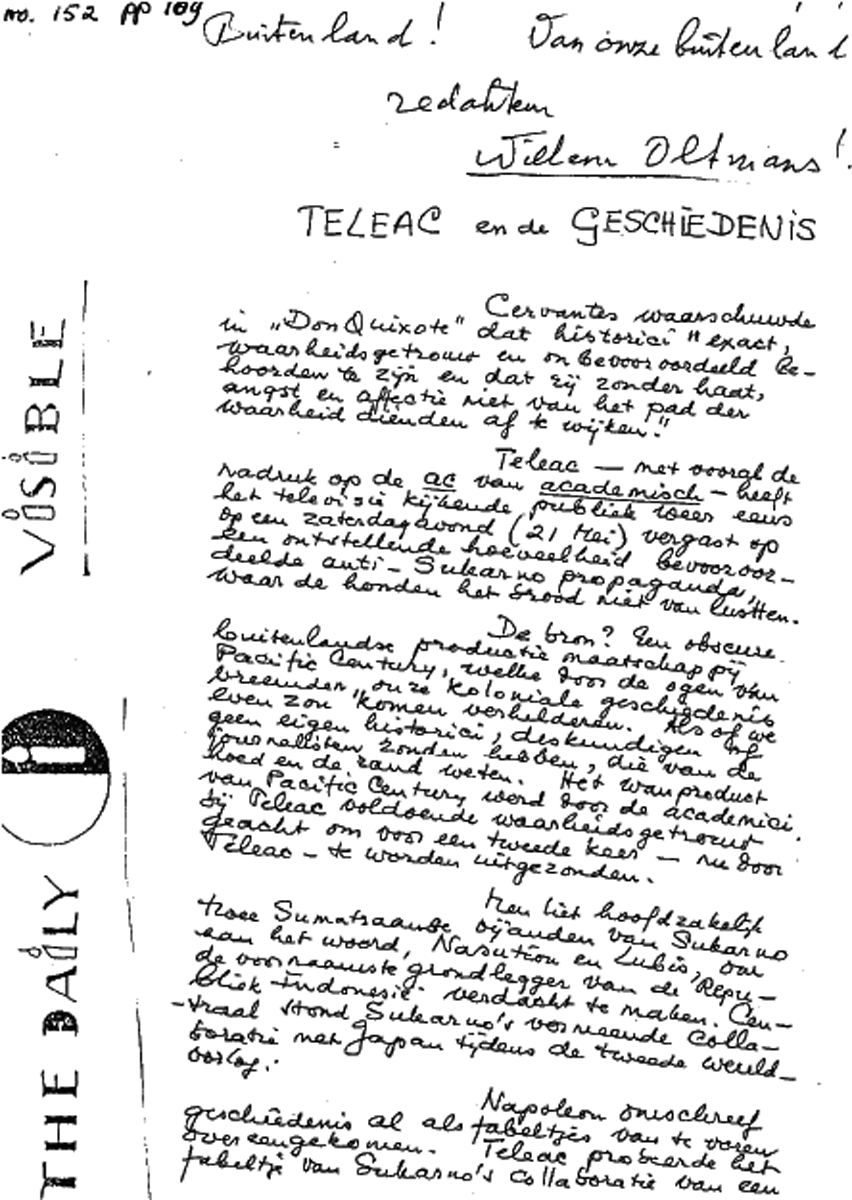 no. 152 pp 109
Buitenland! Van onze buitenland
redakteur
Willem Oltmans!
TELEAC en de GESCHIEDENIS
Cervantes waarschuwde
in „Don Quixote" dat historici "exact,
waarheidsgetrouw en onbevooroordeeld be-
hoorden te zijn en dat zij zonder haat,
angst en affectie niet van het pad der
waarheid dienden af te wijken."
Teleac — met vooral de
nadruk op de ac van academisch — heeft
het televisie kijkende publiek weer eens
op een zaterdagavond (21 Mei) vergast op
een ontstellende hoeveelheid bevooroor-
deelde anti-Sukarno propaganda,
waar de honden het brood niet van lustten.
De bron? Een obscure
buitenlandse productie maatschappij
Pacific Century, welke door de ogen van
vreemden onze koloniale geschiedenis
even zou komen verhelderen. Als of we
geen eigen historici, deskundigen of
journalisten zouden hebben, die van de
hoed en de rand weten. Het wanproduct
van Pacific Century werd door de academici
bij Teleac voldoende waarheidsgetrouw
geacht om voor een tweede keer — nu door
Teleac — te worden uitgezonden.
Men liet hoofdzakelijk
twee Sumatraanse vijanden van Sukarno
aan het woord, Nasution en Lubis, om
de voornaamste grondlegger van de Repu-
bliek Indonesië verdacht te maken. Cen-
-traal stond Sukarno's vermeende colla-
boratie met Japan tijdens de tweede wereld-
oorlog.
Napoleon omschreef
geschiedenis al als fabeltjes van te voren
overeengekomen. Teleac probeerde het
fabeltje van Sukarno's collaboratie van een
THE DAILY i VISIBLE